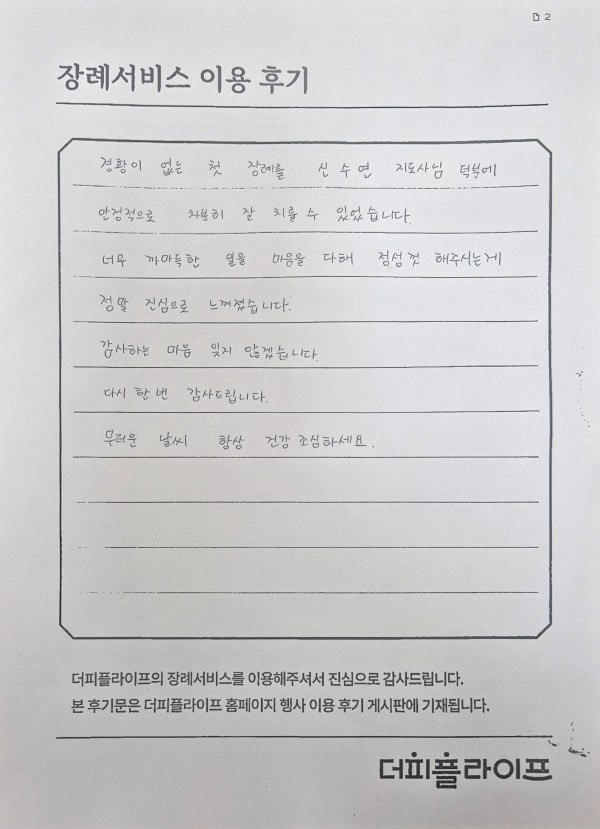 2
장례서비스 이용 후기
경황이 없는 첫 장례를 신수연 지도사님 덕분에
안정적으로 차분히 잘 치를 수 있었습니다.
너무 까마득한 일을 마음을 다해 정성껏 해주시는게
정말 진심으로 느껴졌습니다.
감사하는 마음 잊지 않겠습니다.
다시 한 번 감사드립니다.
무더운 날씨 항상 건강 조심하세요.
더피플라이프의 장례서비스를 이용해주셔서 진심으로 감사드립니다.
본 후기문은 더피플라이프 홈페이지 행사 이용 후기 게시판에 기재됩니다.
더피플라이프